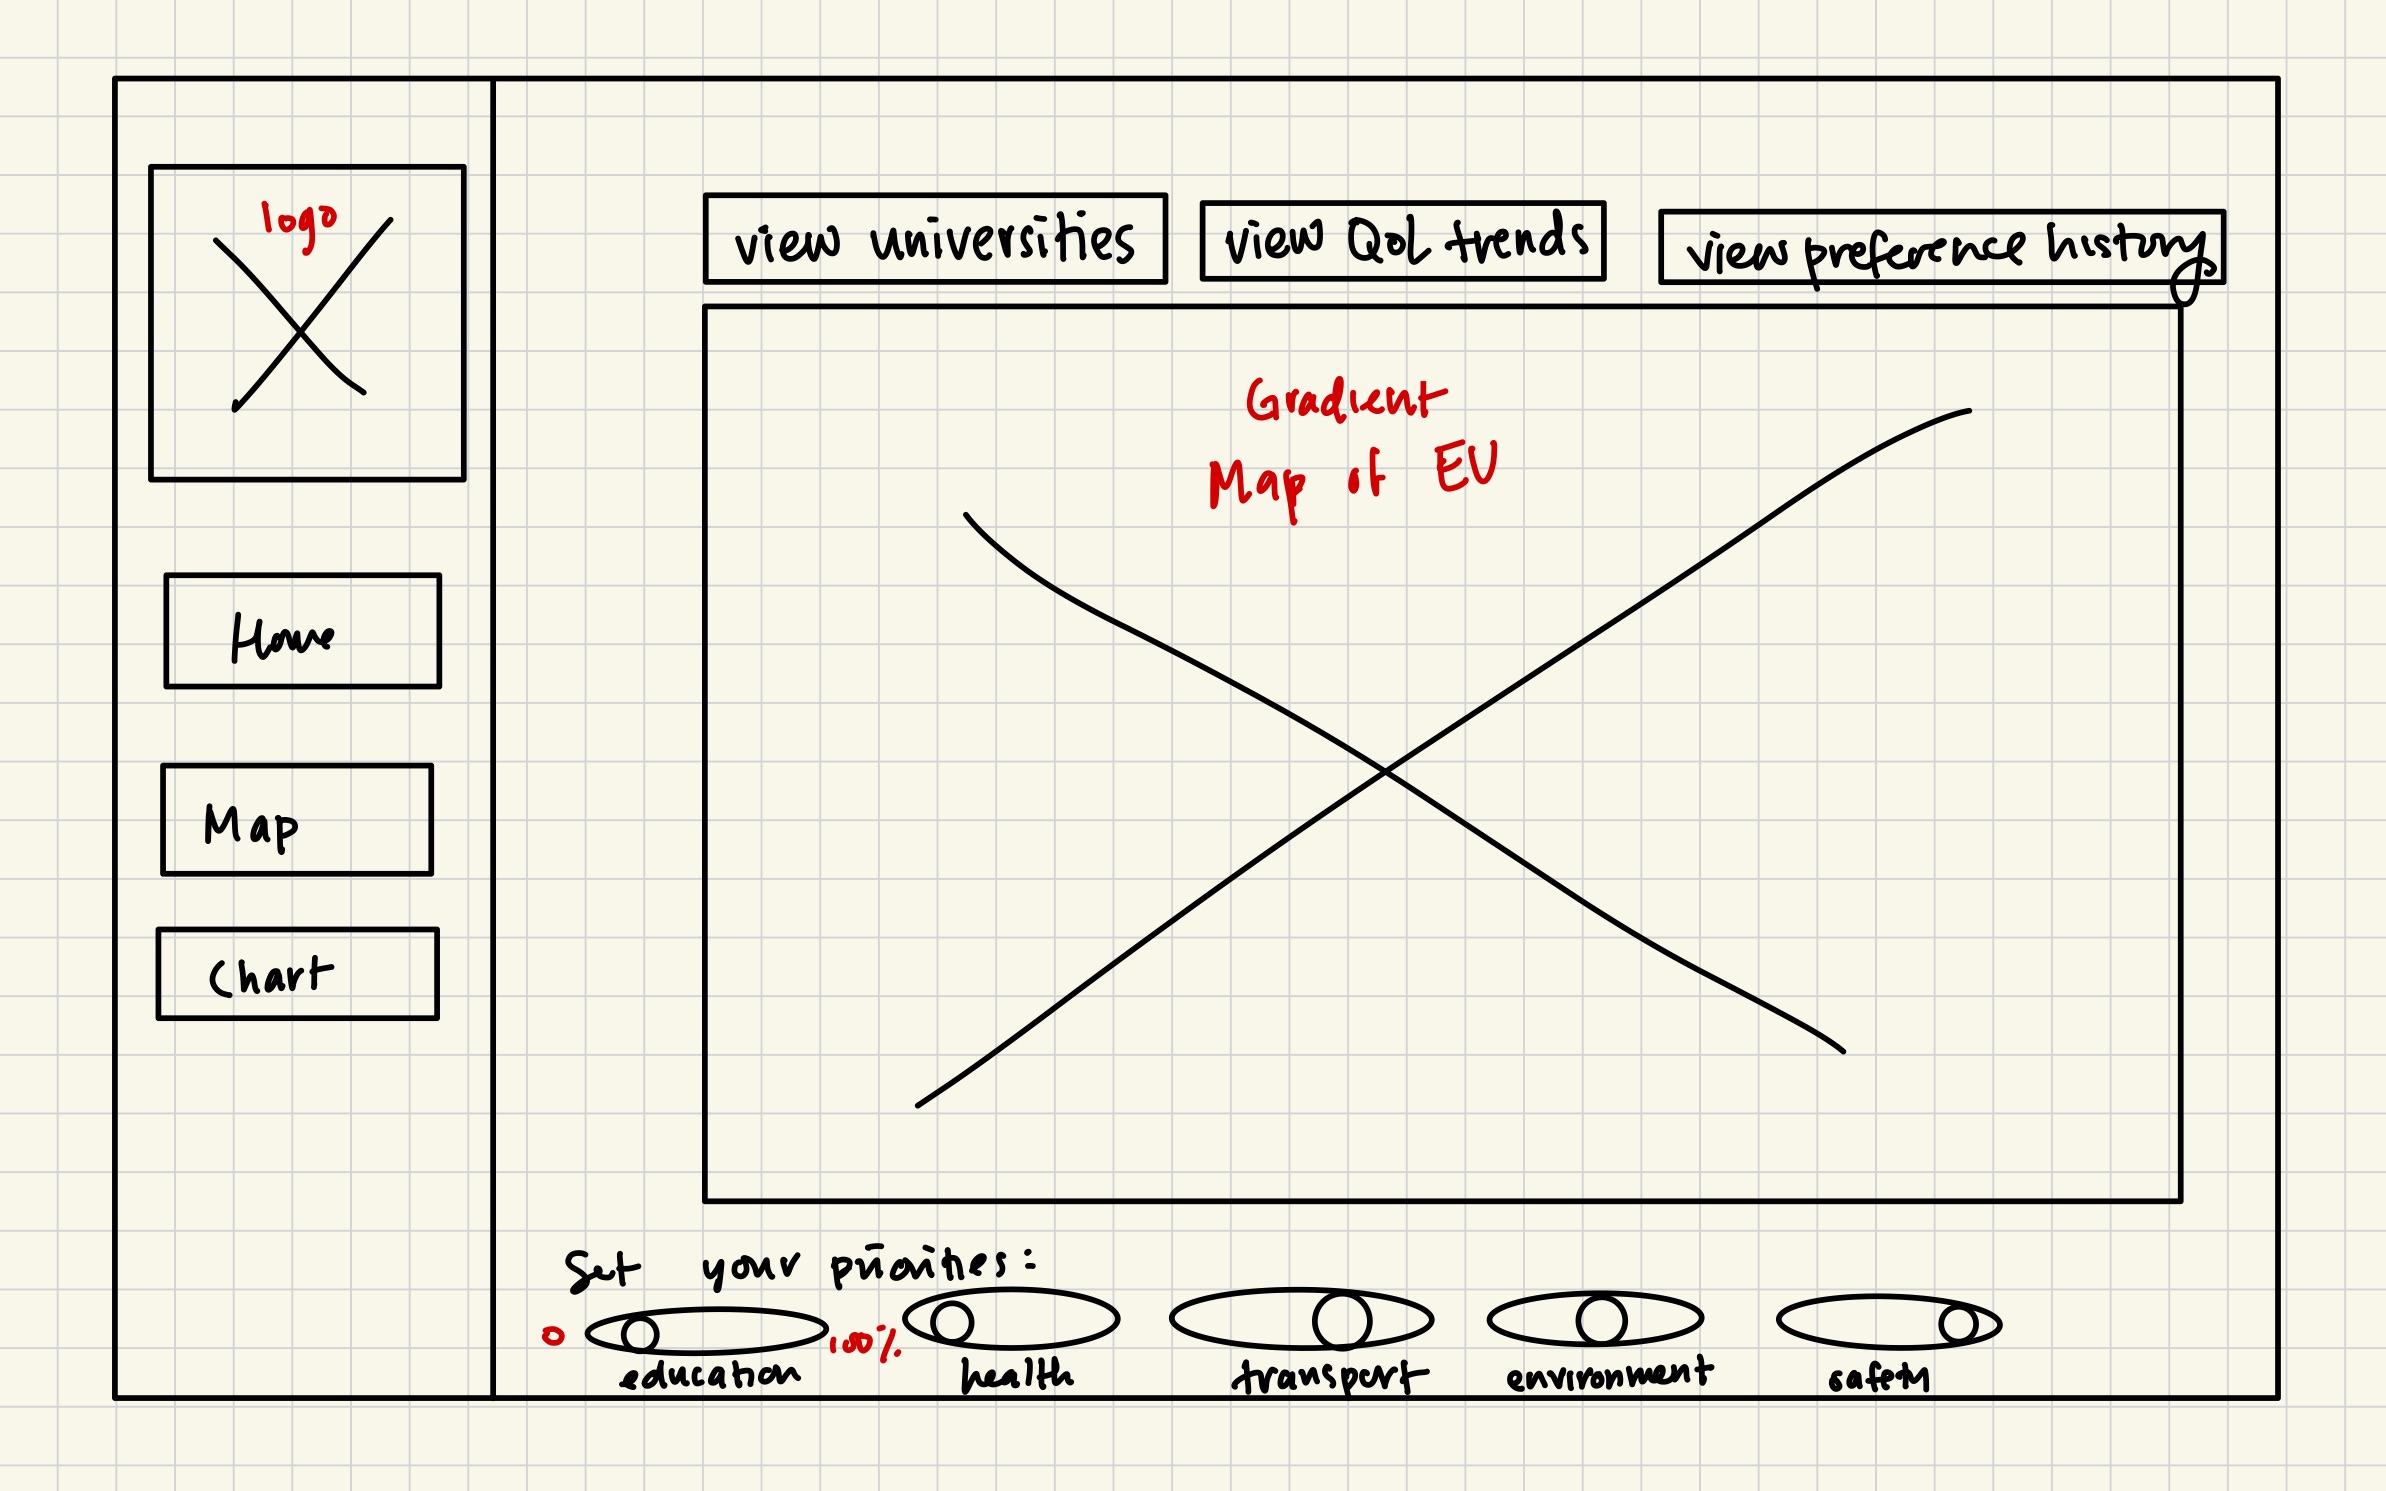 logo
Home
Map
Chart
view universities
view QoL trends
view preference history
Gradient
Map of EU
Set your priorities:
0
100%
education
health
transport
environment
safety